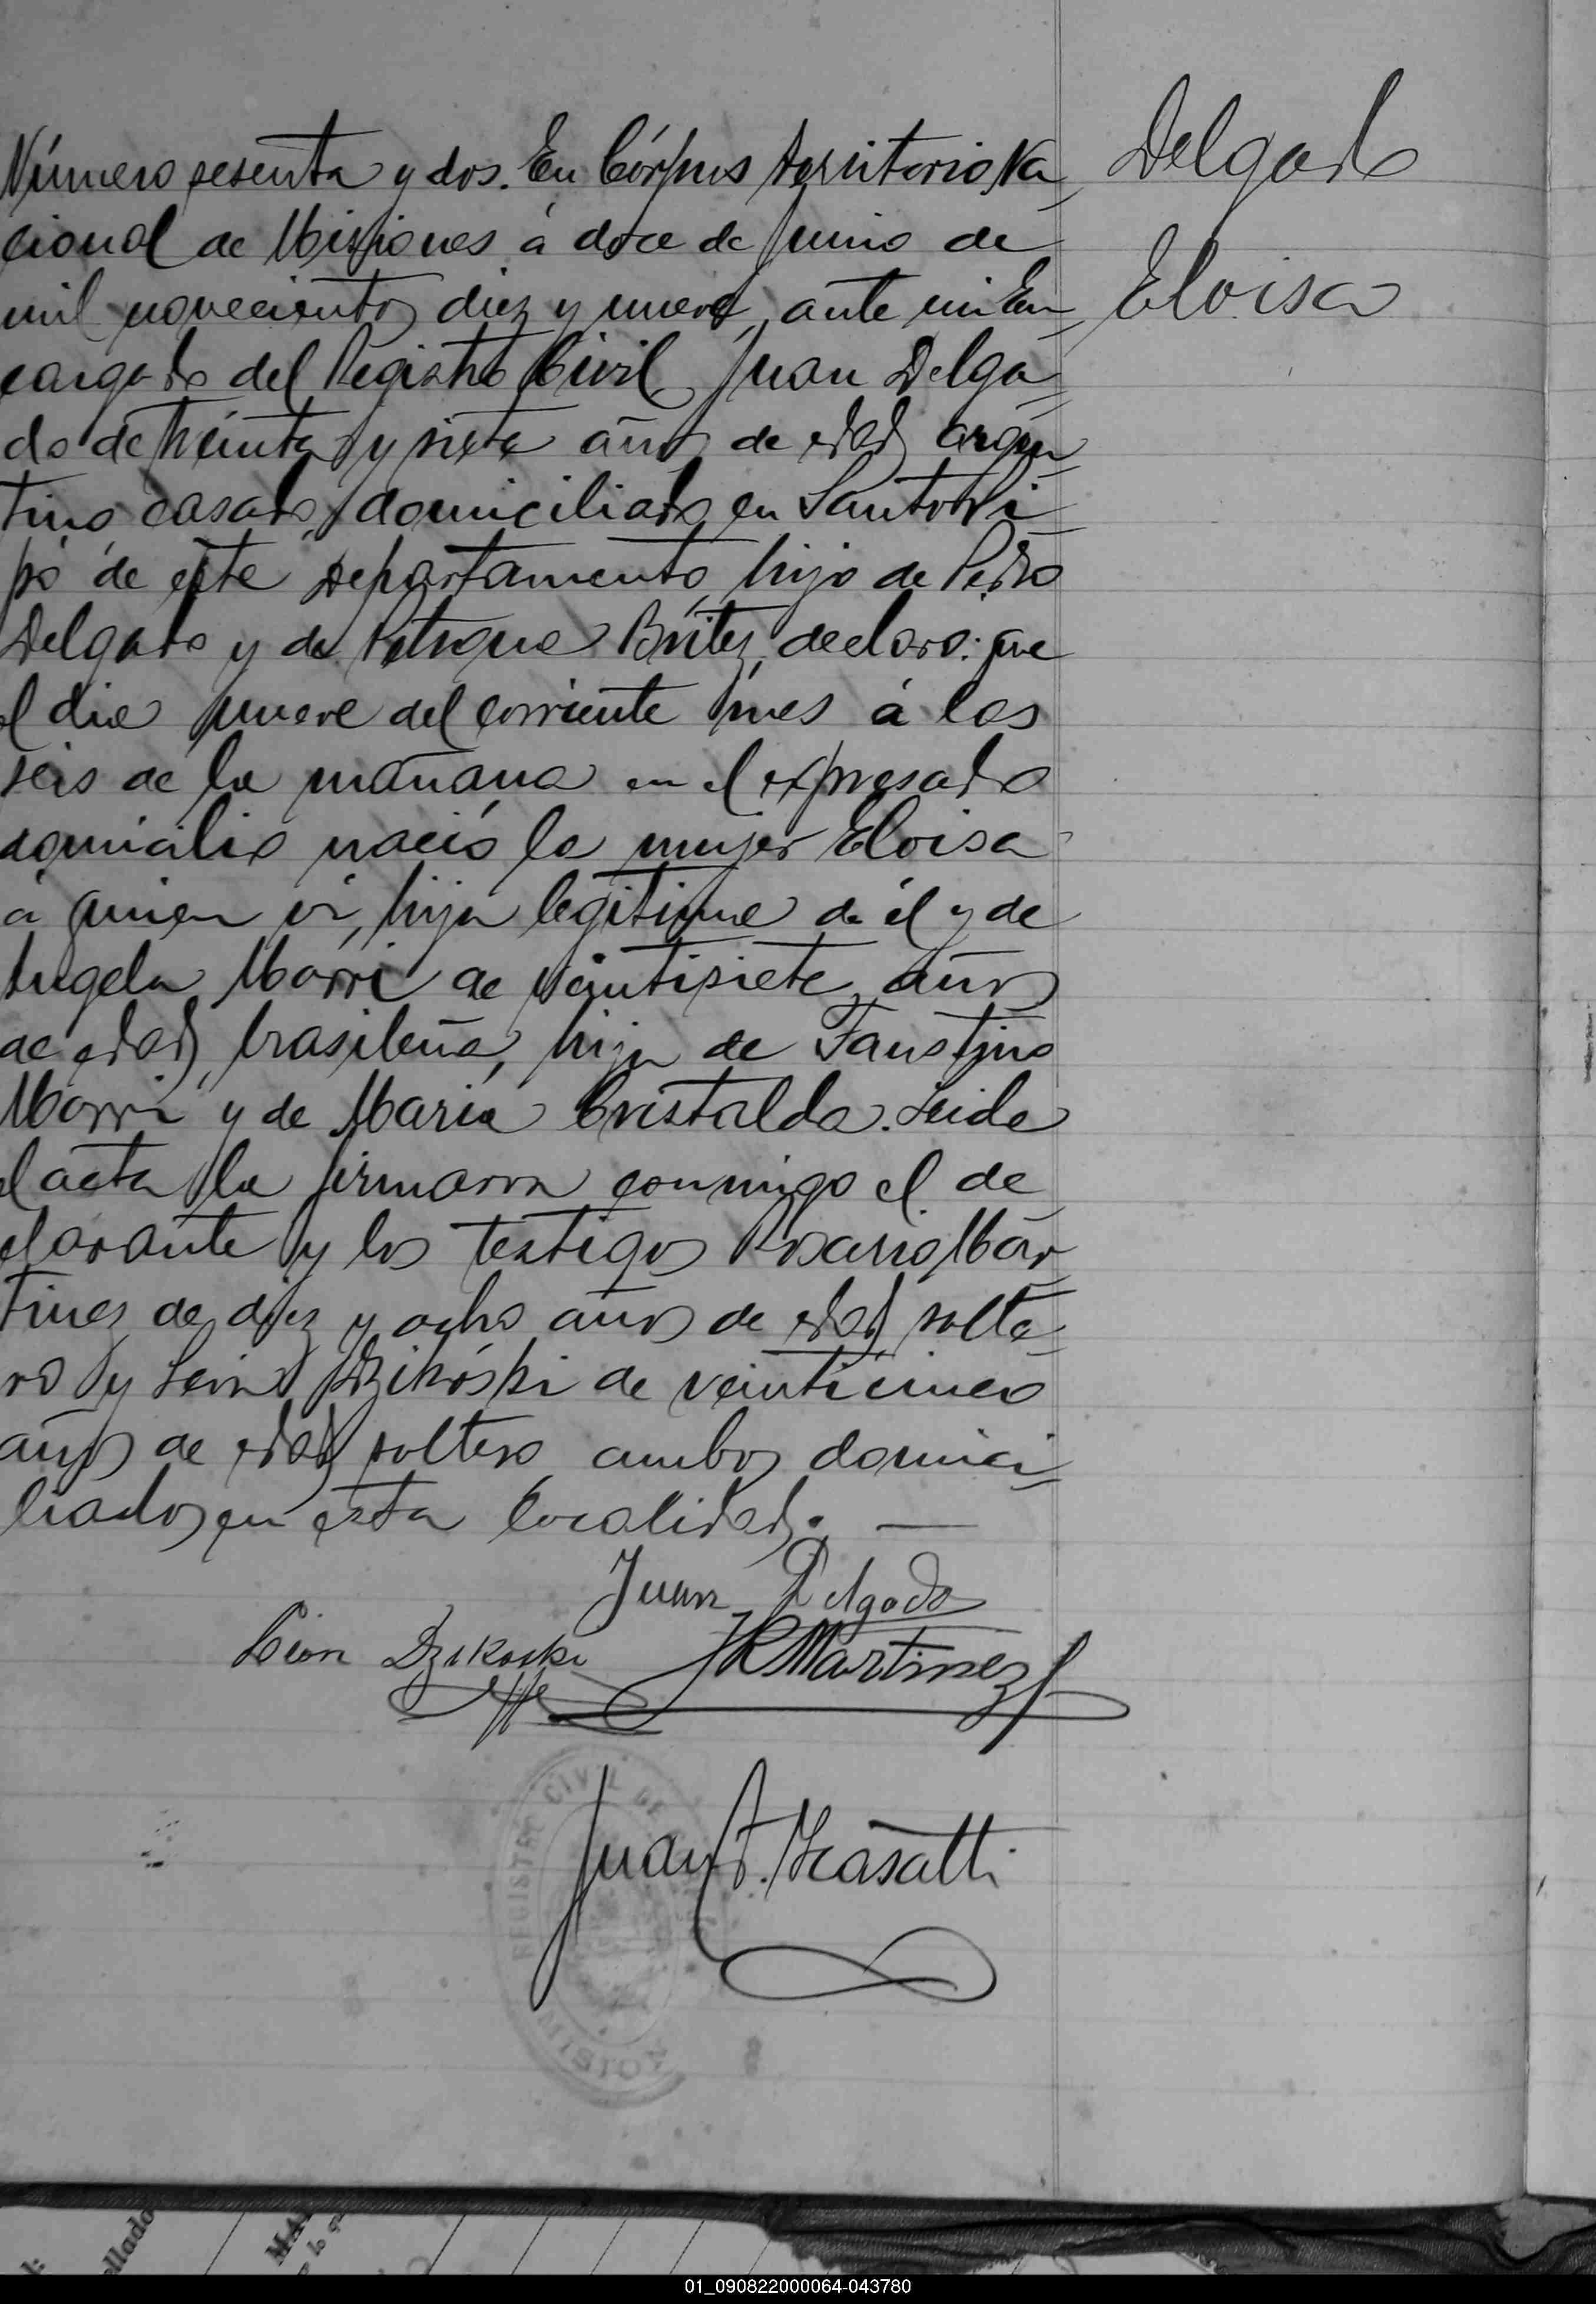 Delgado
Eloisa
Número sesenta y dos. En Córpus Territorio Na
cional de Misiones á doce de Junio de
mil novecientos diez y nueve, ante mi En
cargado del Registro Civil, Juan Delga
do de treinta y siete años de edad, argen
tino, casado, domiciliado en Santo Pi
pó de este Departamento, hijo de Pedro
Delgado y de Petrona Brítez, declaró: que
el dia nueve del corriente mes á las
seis de la mañana en el expresado
domicilio nació la mujer Eloisa
á quien ví, hija legítima de él y de
Angela Morri de veintisiete años
de edad, brasileña, hija de Faustino
Morri y de Maria Cristaldo. Leida
el acta la firmaron conmigo el de
clarante y los testigos Rosario Mar
tinez de diez y ocho años de edad, solte
ro y León Dzikóski de veinticinco
años de edad, soltero, ambos domici
liados en esta localidad. —
Juan Delgado
León Dzikoski
JRMartinez
Juan
REGISTRO CIVIL DE
01_090822000064-043780